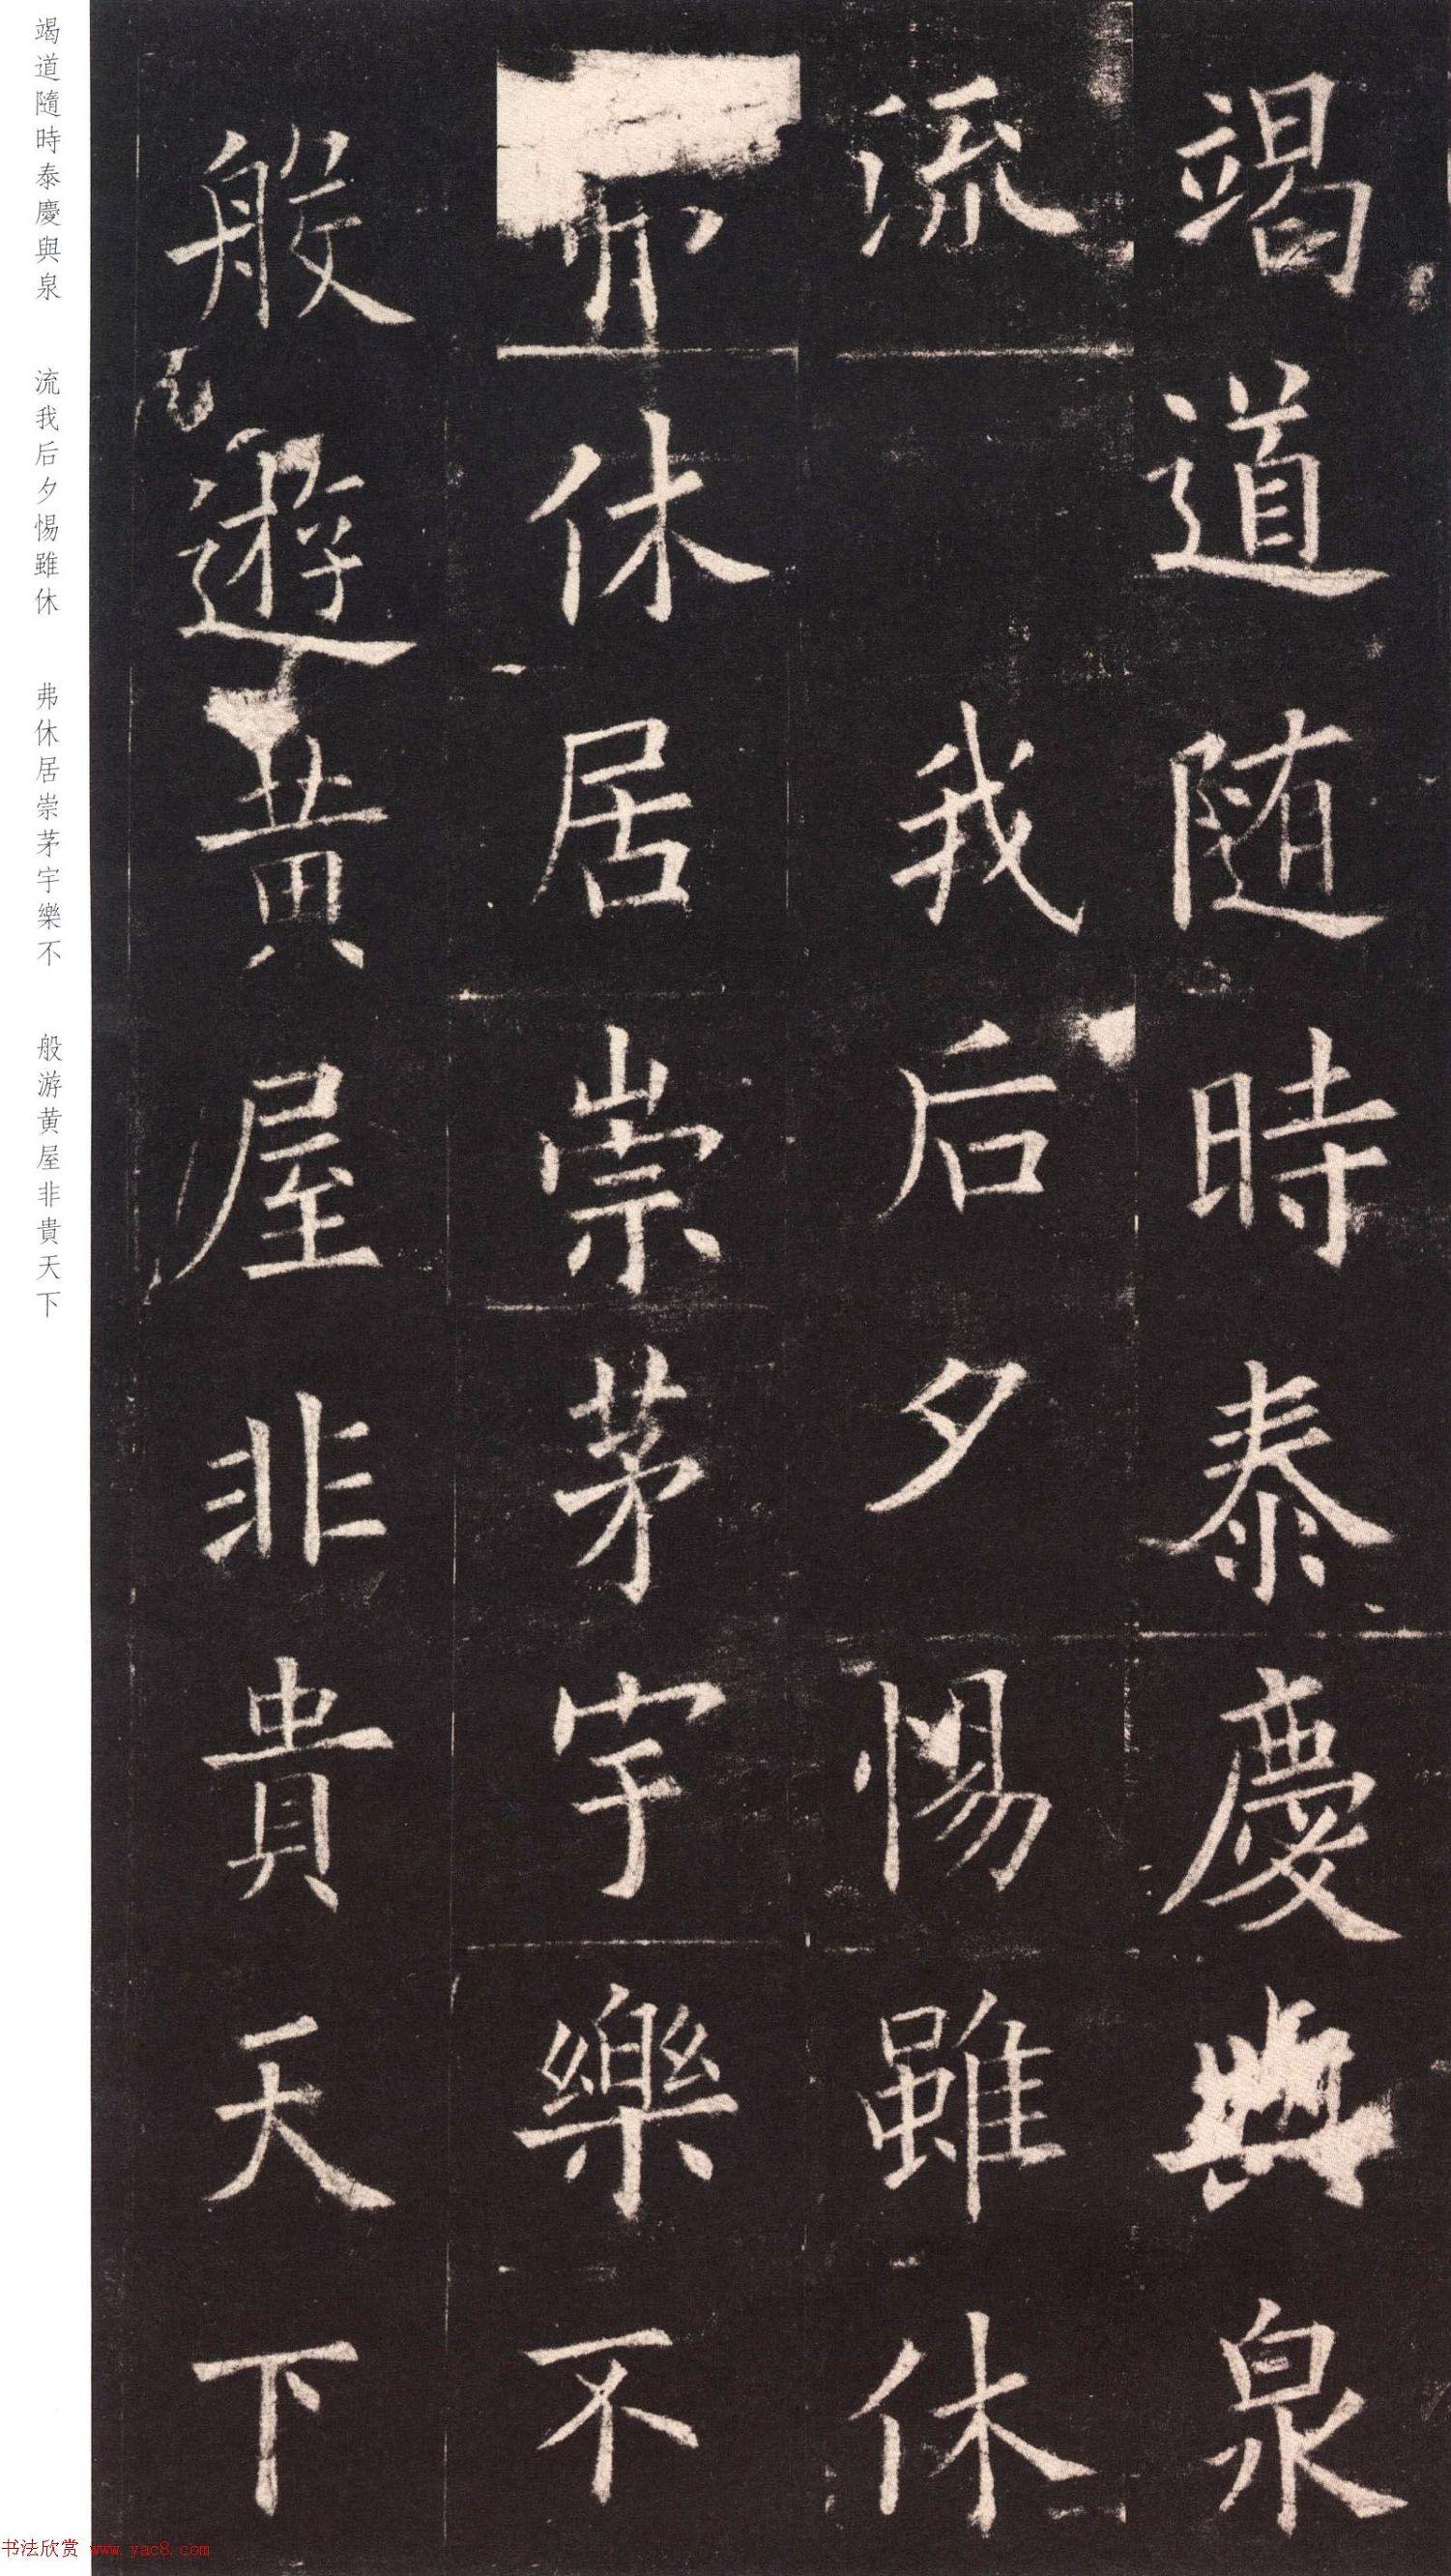 竭道随時泰慶與泉
流我后夕惕雖休
休居崇茅宇樂不
般遊黄屋非貴天下
竭道隨時泰慶與泉 流我后夕惕雖休 弗休居崇茅宇樂不 般游黄屋非貴天下
书法欣赏 www.yac8.com